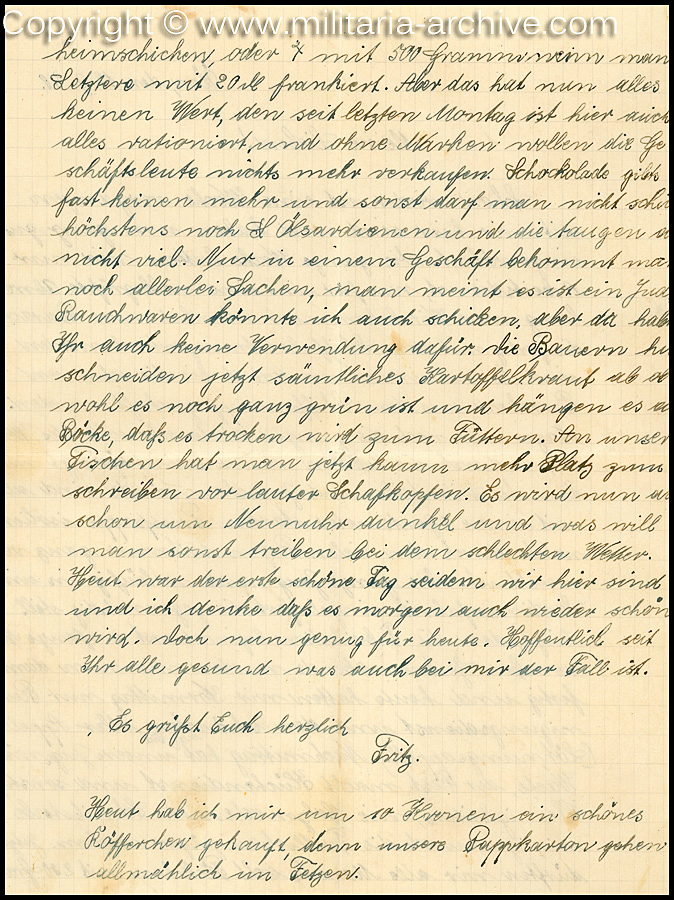 Copyright © www.militaria-archive.com
heimschicken, oder mit 500 Gramm wenn man
Letztere mit 20 frankiert. Aber das hat nun alles
keinen Wert, den seit letzten Montag ist hier auch
alles rationiert, und ohne Marken wollen die Ge
schäftsleute nichts mehr verkaufen. Schockolade gibts
fast keinen mehr und sonst darf man nicht schi
höchstens noch Ölsardienen und die taugen a
nicht viel. Nur in einem Geschäft bekommt ma
noch allerlei Sachen, man meint es ist ein Jud
Rauchwaren könnte ich auch schicken, aber da hab
Ihr auch keine Verwendung dafür. Die Bauern hi
schneiden jetzt sämtliches Kartoffelkraut ab o
wohl es noch ganz grün ist und hängen es a
Böcke, daß es trocken wird zum Füttern. An unser
Tischen hat man jetzt kaum mehr Platz zum
schreiben vor lauter Schafkopfen. Es wird nun a
schon um Neunuhr dunkel und was will
man sonst treiben bei dem schlechten Wetter.
Heut war der erste schöne Tag seidem wir hier sind
und ich denke daß es morgen auch wieder schön
wird. Doch nun genug für heute. Hoffentlich seit
Ihr alle gesund was auch bei mir der Fall ist.
Es grüßt Euch herzlich
Fritz.
Heut hab ich mir um 10 Kronen ein schönes
Köfferchen gekauft, denn unsere Pappkarton gehen
allmählich im Fetzen.